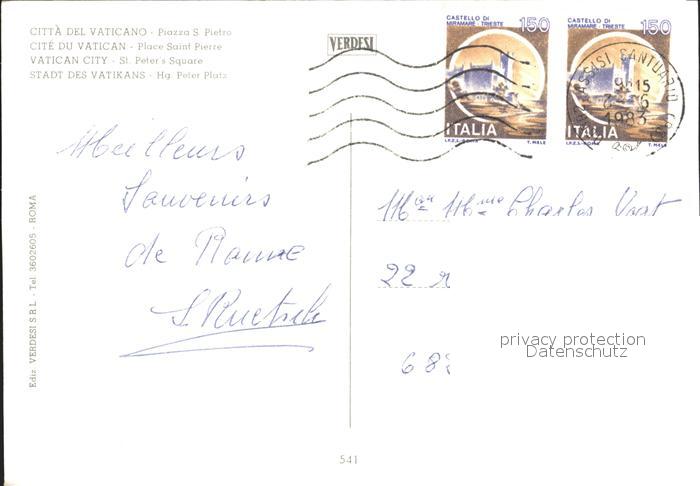 CITTÀ DEL VATICANO - Piazza S. Pietro
CITÉ DU VATICAN - Place Saint Pierre
VATICAN CITY - St. Peter's Square
STADT DES VATIKANS - Hg. Peter Platz
VERDESI
CASTELLO DI MIRAMARE - TRIESTE 150
ITALIA
I.P.Z.S. - ROMA T. MELE
CASTELLO DI MIRAMARE - TRIESTE 150
ITALIA
I.P.Z.S. - ROMA T. MELE
ASSISI SANTUARIO
1983
Meilleurs
Souvenirs
de Rome
Mr Mme Charles
22 r
68
privacy protection
Datenschutz
Ediz. VERDESI S R L - Tel 3602605 - ROMA
541